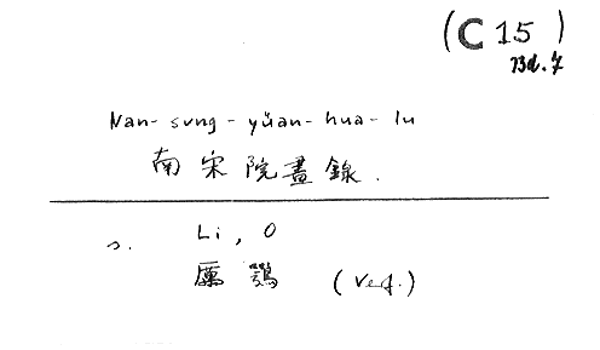 (C 15)
Bd. 7
Nan-sung-yüan-hua-lu
南宋院畫錄.
s. Li, O
厲鶚 (Verf.)